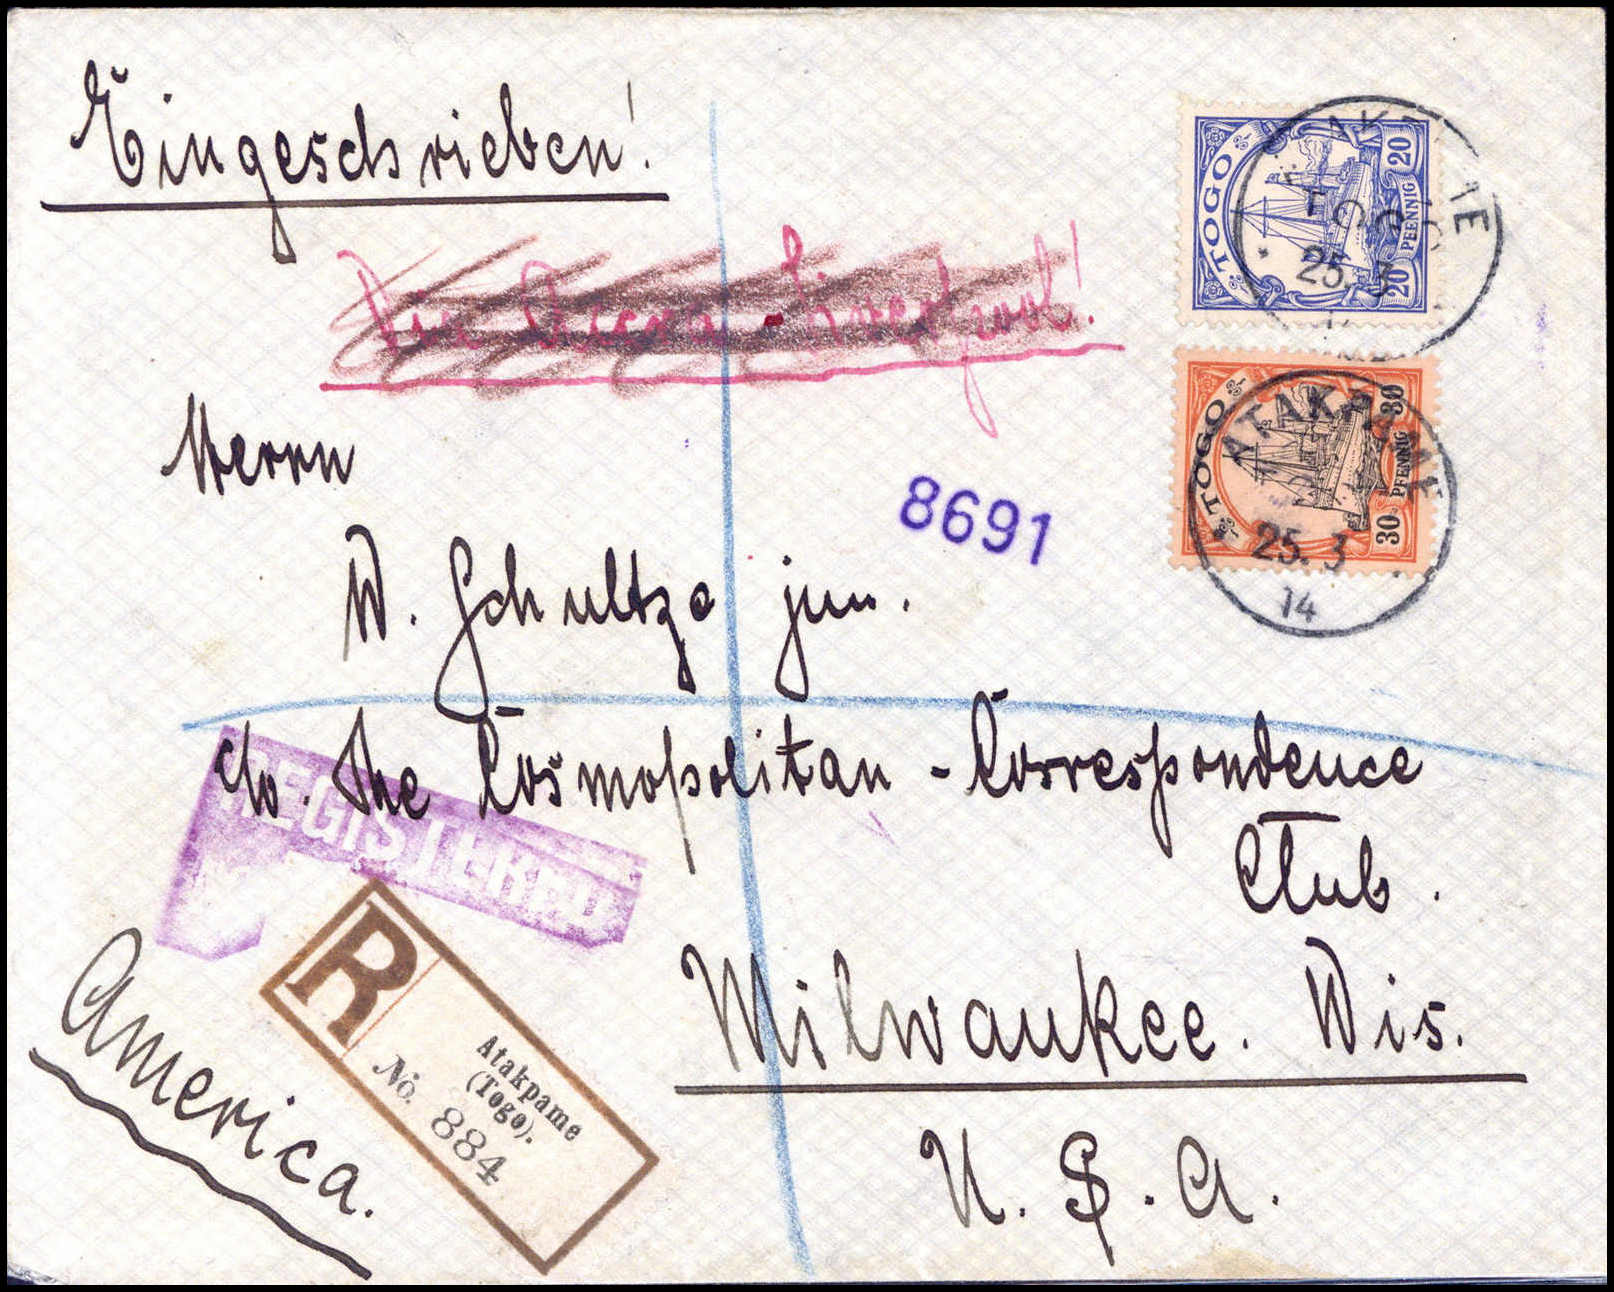 Eingeschrieben!
TOGO
20 PFENNIG 20
TOGO
25. 3
Liverpool!
TOGO
30 PFENNIG 30
ATAKPAME
25. 3
14
Herrn
8691
W. Schultze jun.
c/o. The Cosmopolitan - Correspondence
Club.
REGISTERED
Milwaukee. Wis.
U. S. A.
America.
R
Atakpame
(Togo).
No. 884